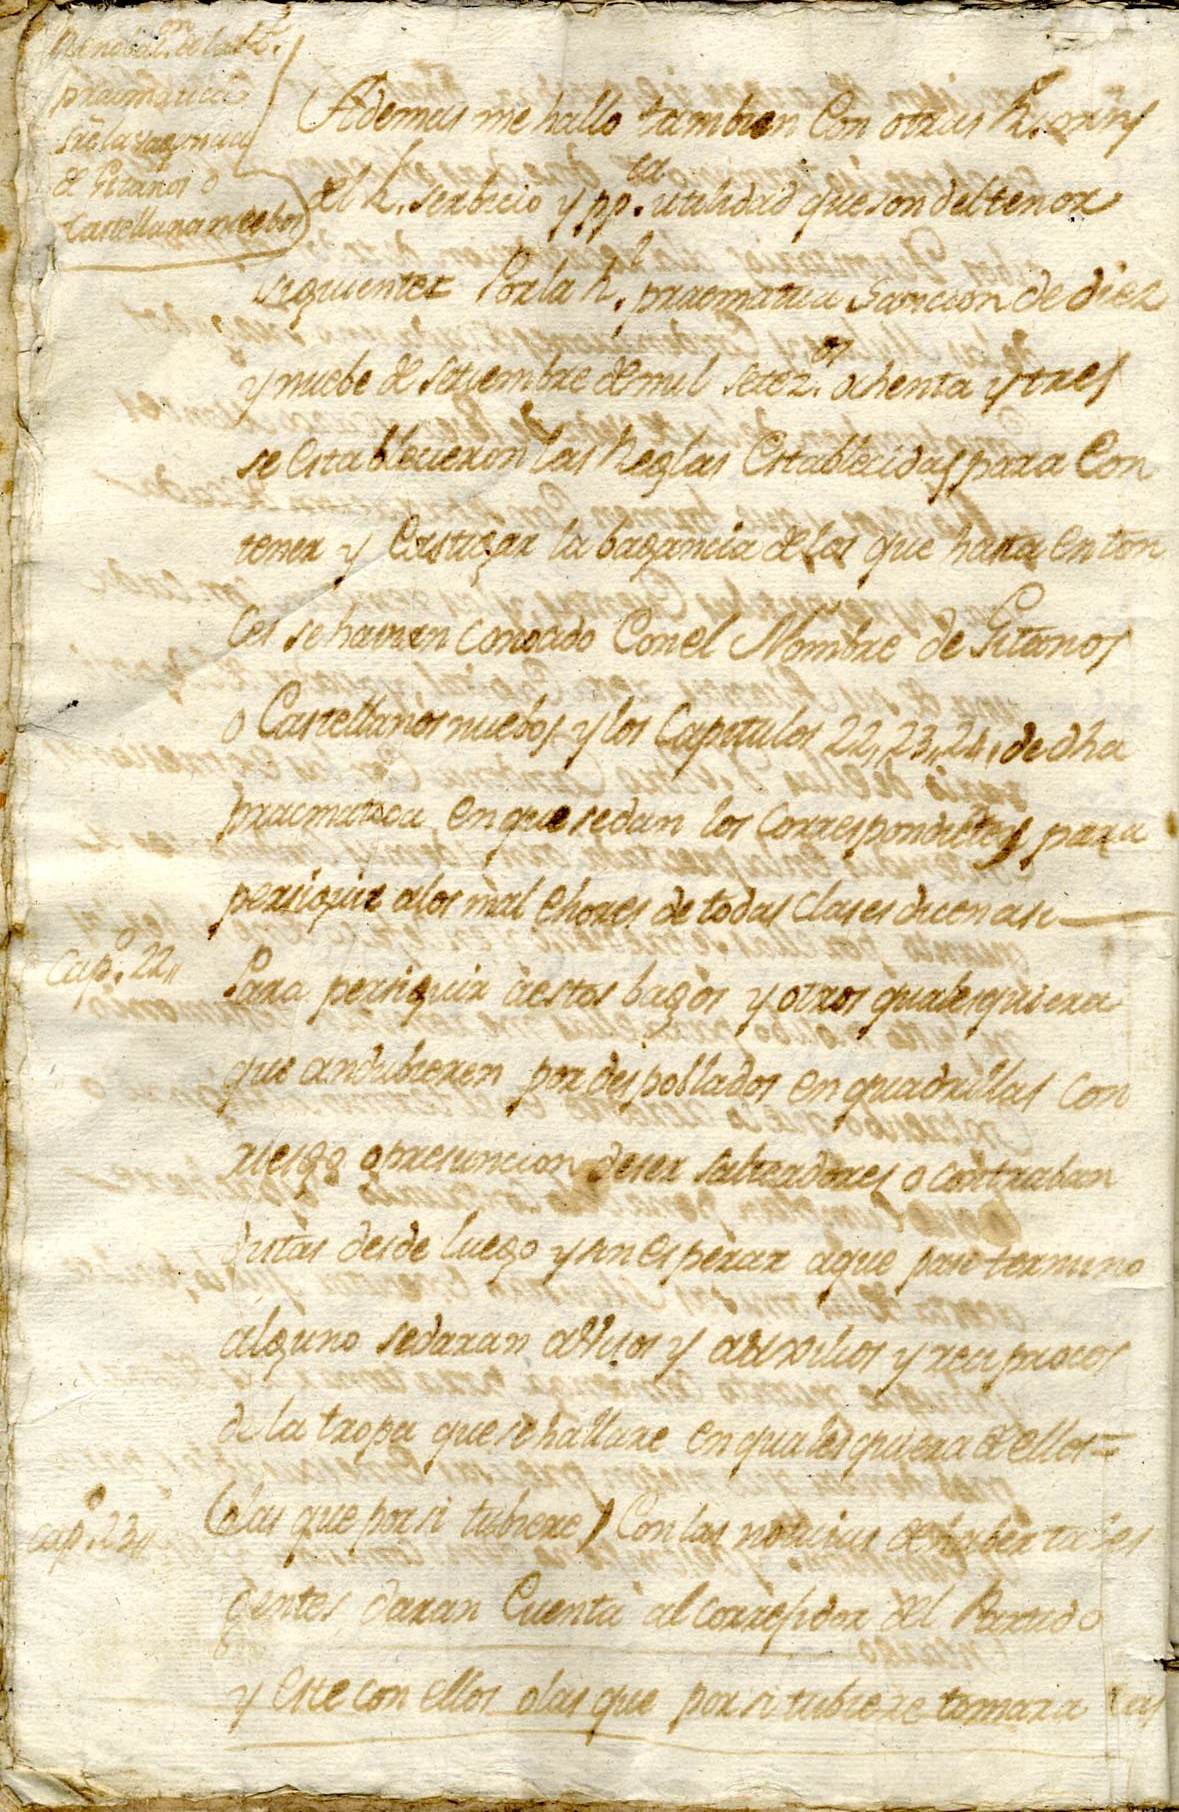 pracmatica
de Gitanos o
Castellanos nuebos
Ademas me hallo tambien Con otras R. orns
del R. serbicio y ppca. utilidad que son del tenor
siguiente= Por la Rl. pracmatica Sancion de diez
y nuebe de setiembre de mil setezos. ochenta y tres
se establecieron las Reglas Establecidas para Con
tener y Castigar la bagancia de los que hasta enton
ces se havian conocido Con el Nombre de Gitanos
o Castellanos nuebos y los Capitulos 22,, 23,, 24,, de dha
pracmatica en que se dan los Correspondientes para
persiguir a los mal echores de todas clases dicen asi
Capo. 22,,
Para persiguir a estos bagos y otros qualesquiera
que andubieren por despoblados en quadrillas con
riesgo o presuncion de ser salteadores o contraban
distas desde luego y sin esperar a que pase termino
alguno se daran abisos y auxilios y reciprocos
de la tropa que se hallare en qualesquiera de ellos=
capo. 23,,
(o las que por si tubiere) Con las noticias de haber tales
gentes daran Cuenta al corregidor del Partido
y este con ellos o las que por si tubiere tomara las